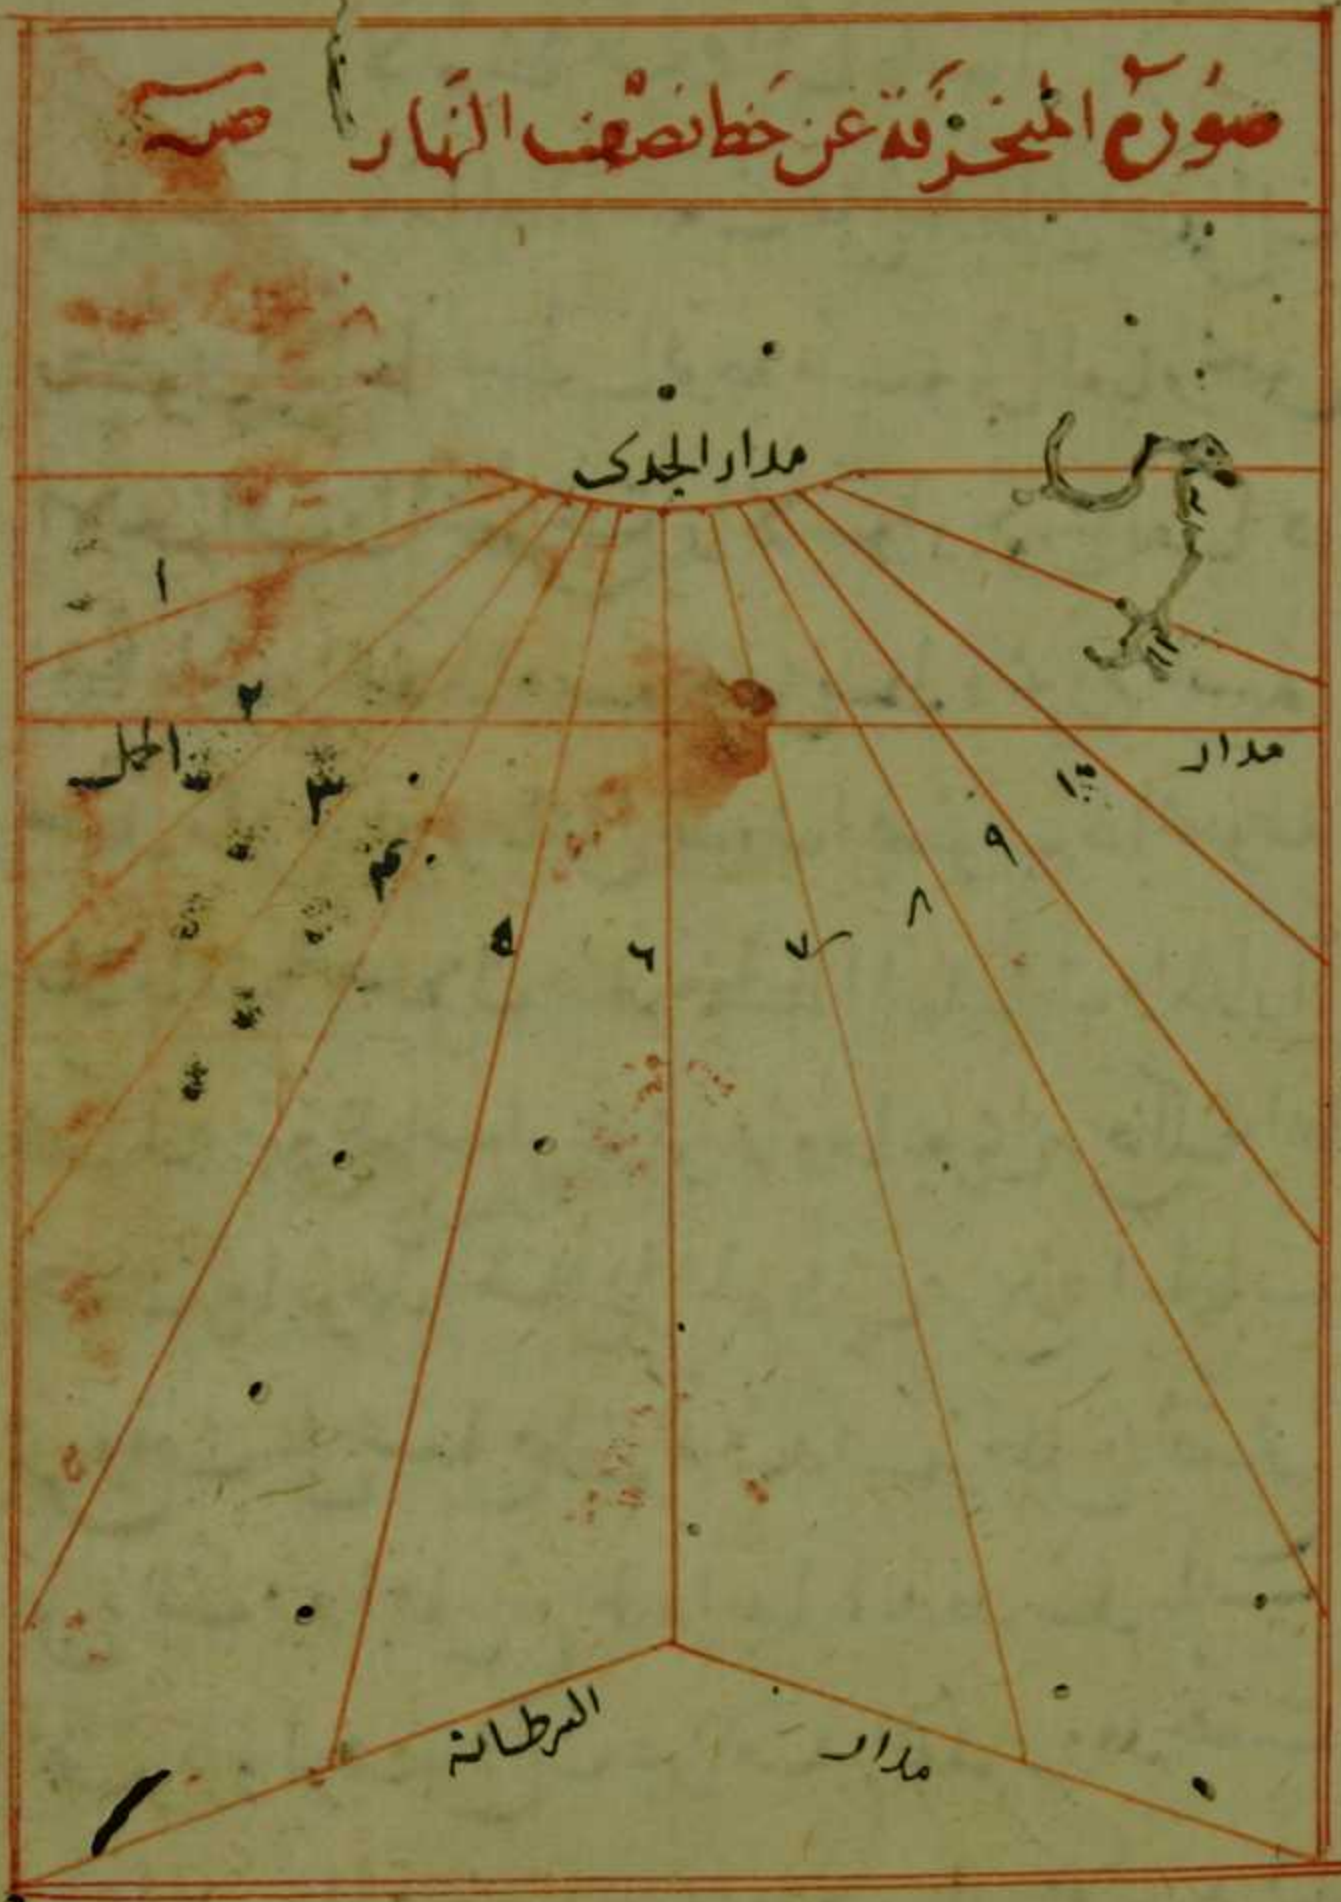 صورة المنحرفة عن خط نصف النهار
مدار الجدى
١
١١
٢
مدار الحمل
٣
١٠
٤
٩
٥
٦
٧
٨
مدار السرطان